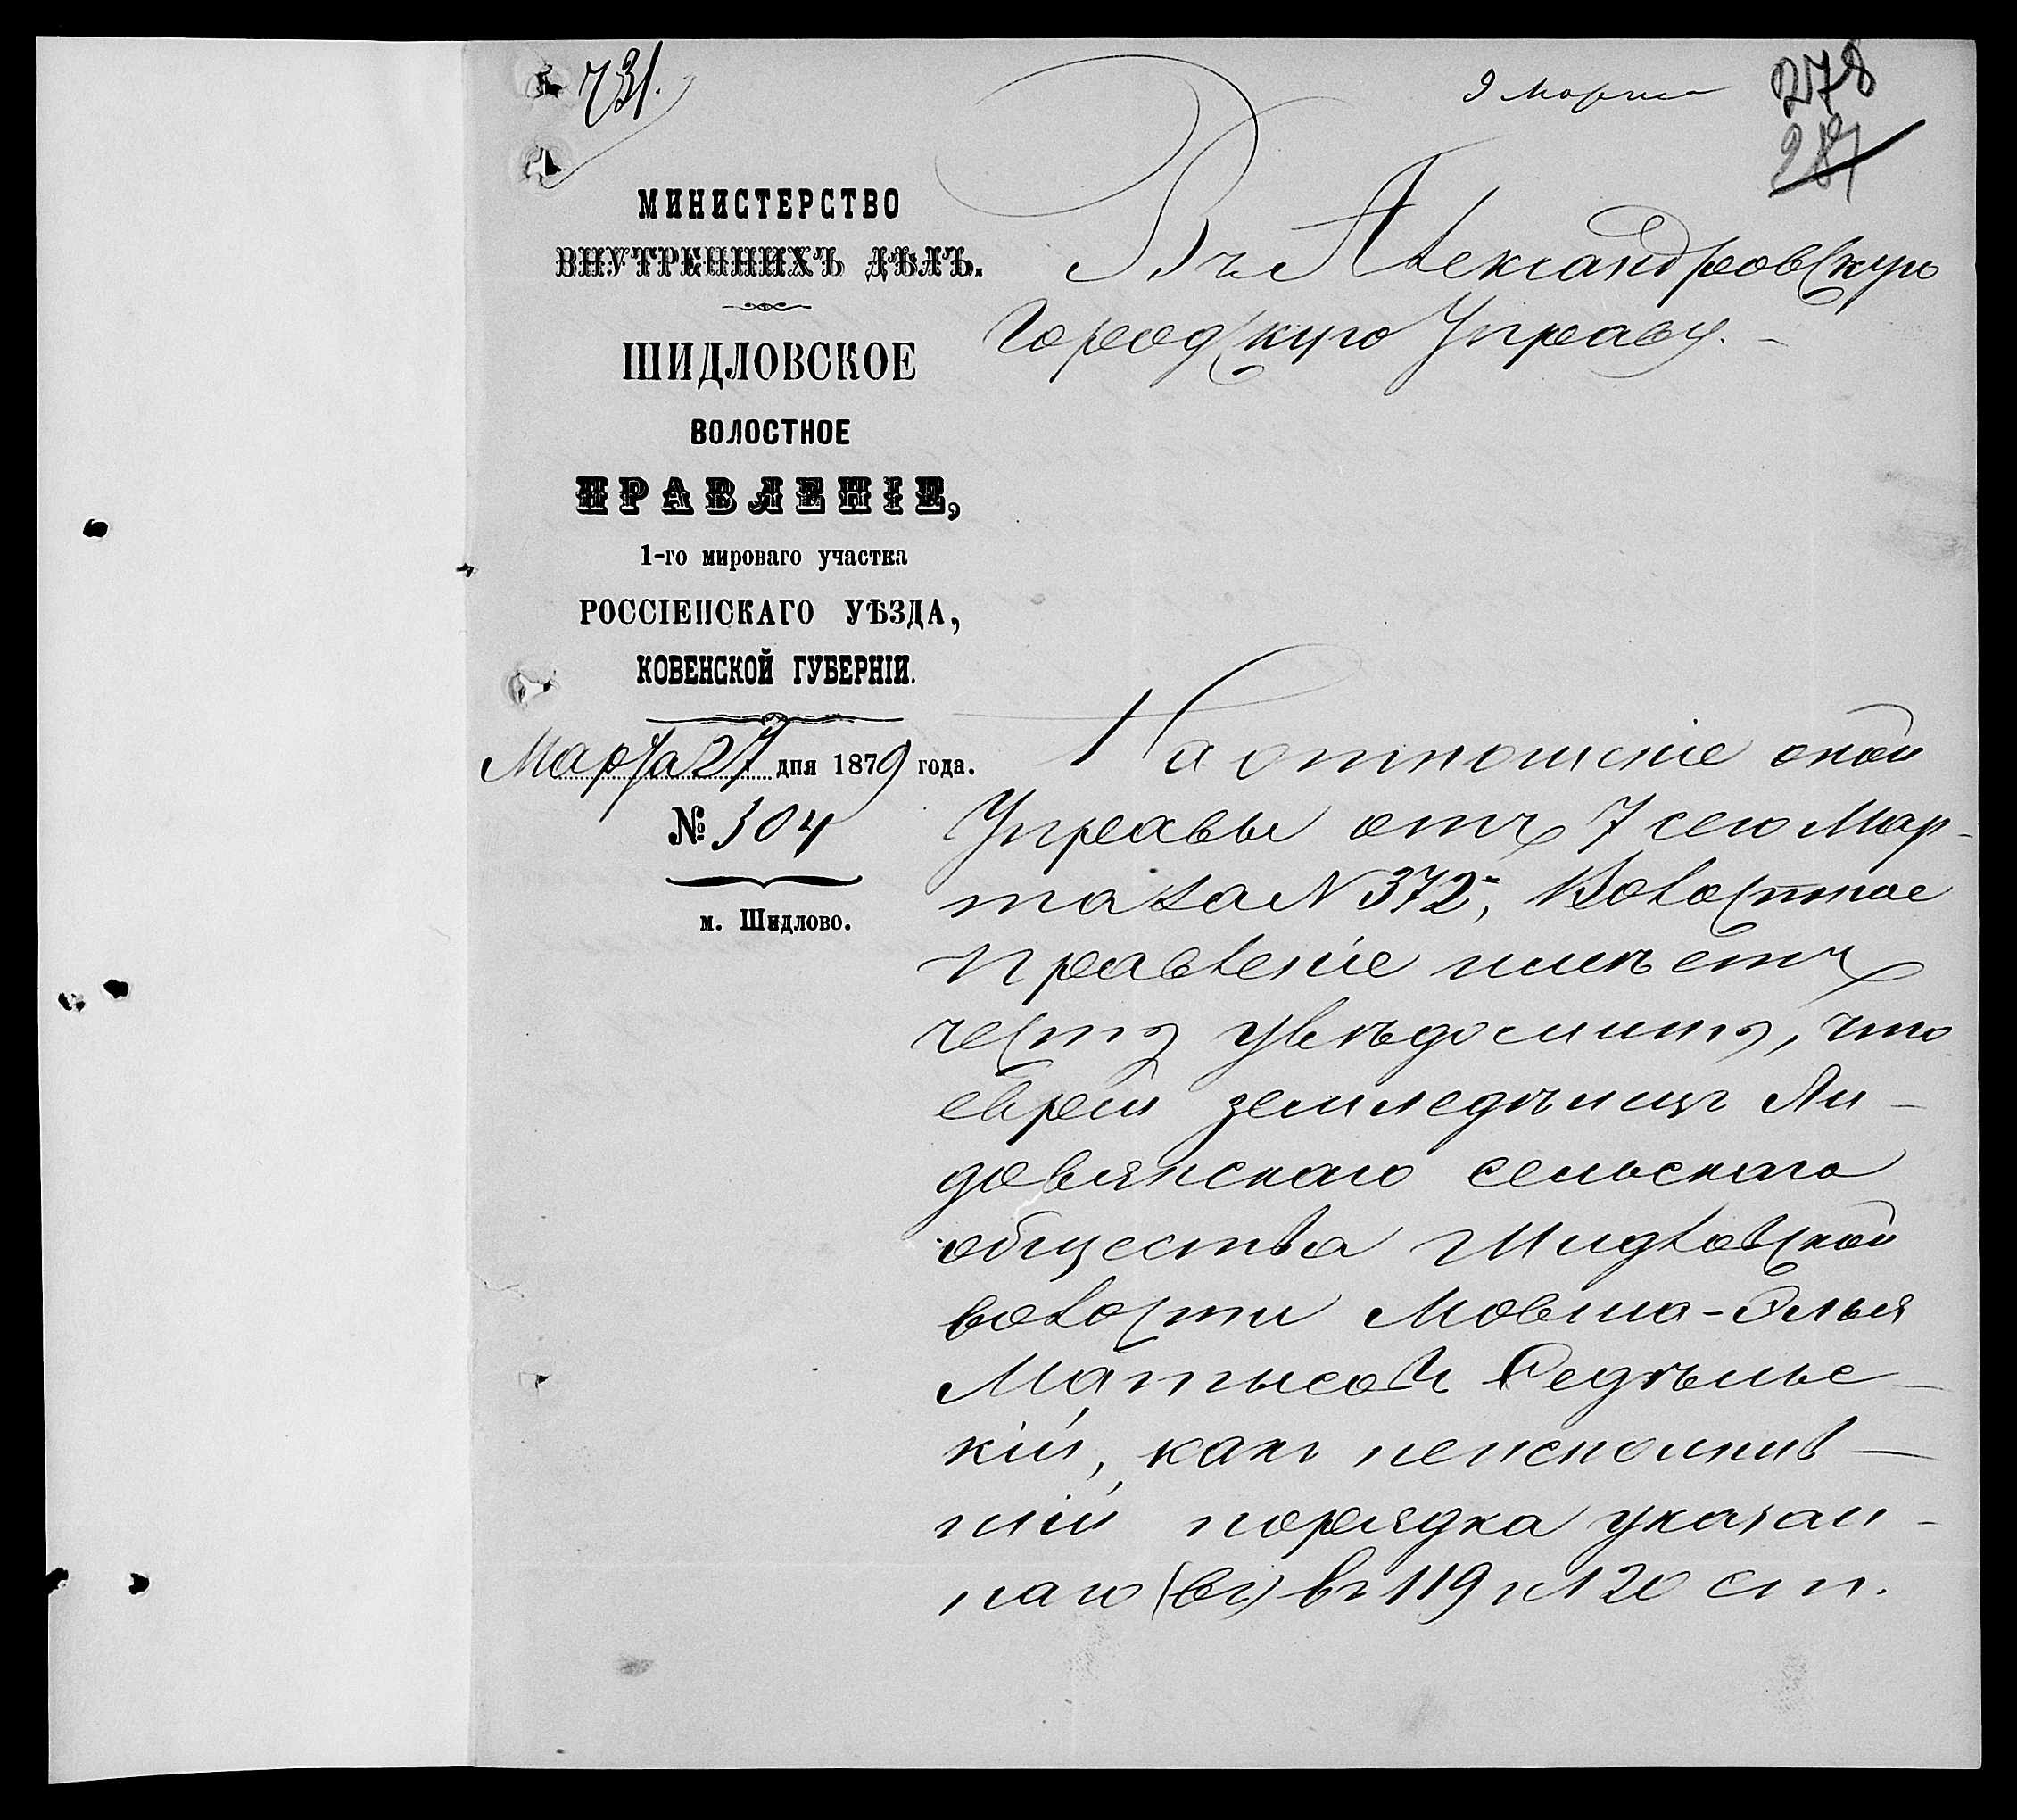 731.
9 марта
278
287
МИНИСТЕРСТВО
ВНУТРЕННИХЪ ДѢЛЪ.
ШИДЛОВСКОЕ
ВОЛОСТНОЕ
ПРАВЛЕНІЕ,
1-го мироваго участка
РОССІЕНСКАГО УѢЗДА,
КОВЕНСКОЙ ГУБЕРНІИ.
Марта 27 дня 1879 года.
№ 304
м. Шидлово.
Въ Александровскую
Городскую Управу.
На отношеніе оной
Управы отъ 7 сего Мар-
та за N 372, Волостное
Правленіе имѣетъ
честь увѣдомить, что
еврей земледѣлецъ Ли-
довянскаго сельскаго
общества Шидловской
волости Мовша-Элья
Матысовъ Федѣльс-
кій, какъ неисполнив-
шій порядка указан-
наго (въ) въ 119 и 120 ст.